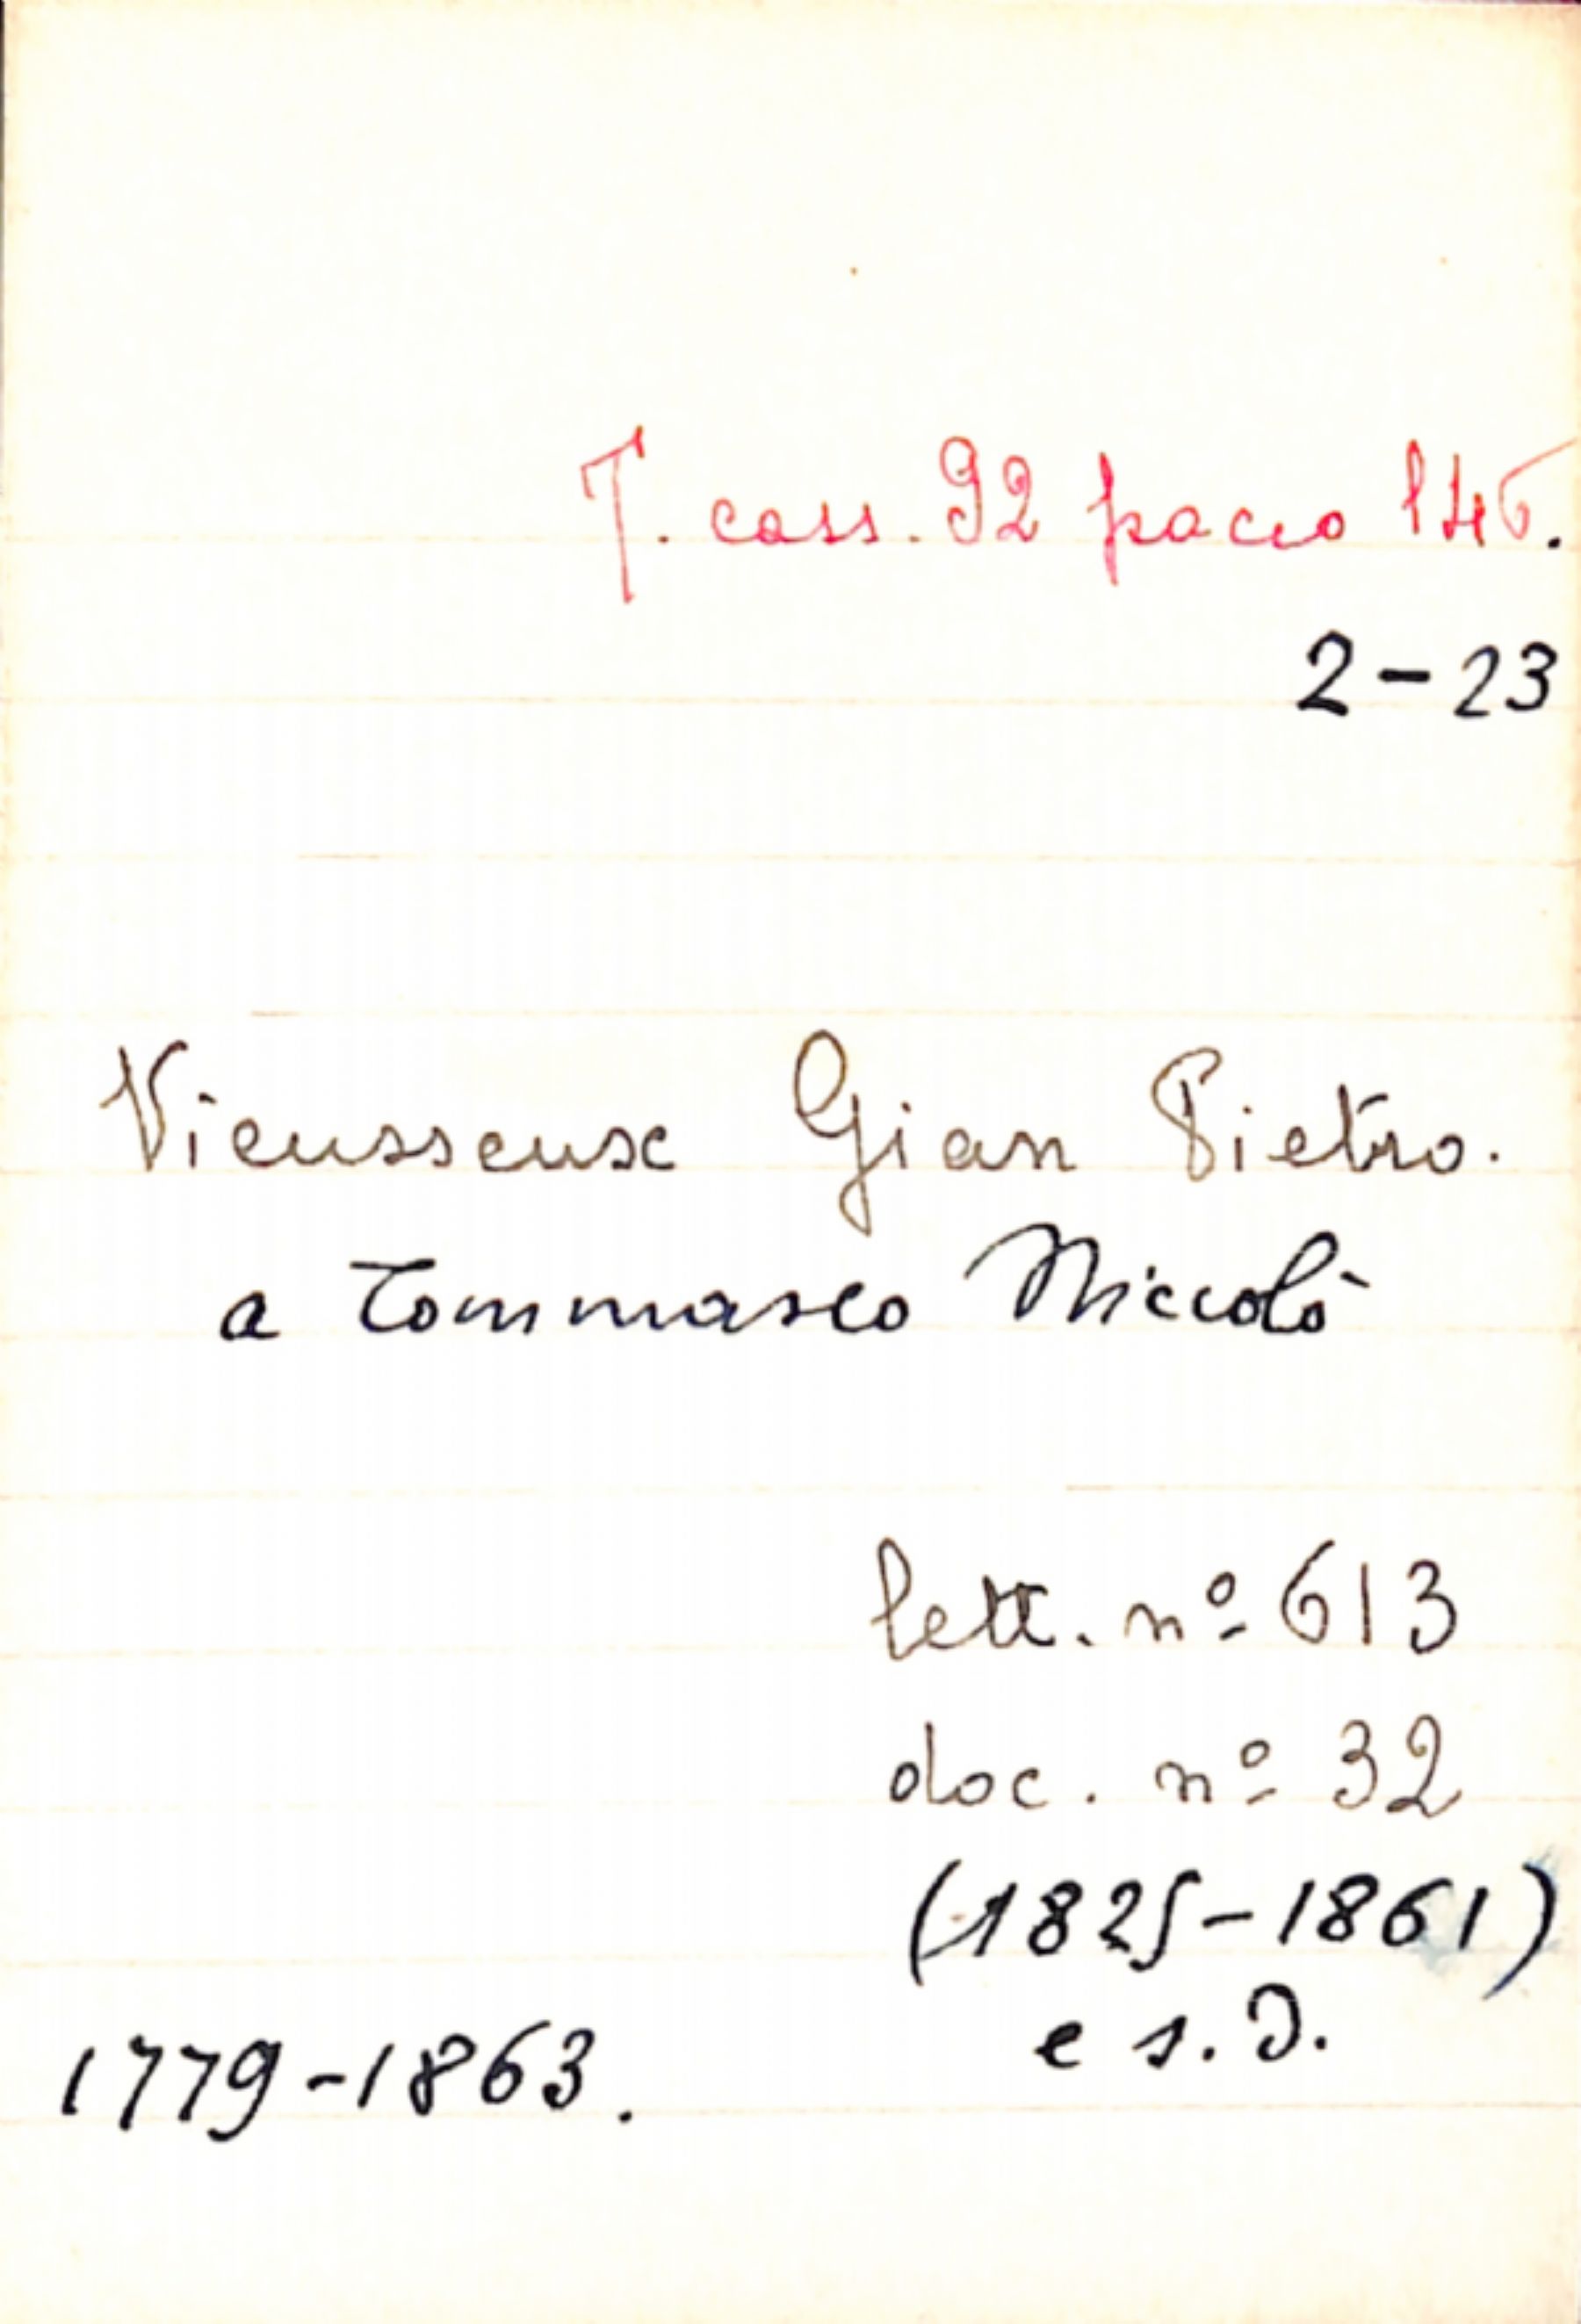 T. cass. 92 pacco 145.
2-23
Vieusseux Gian Pietro.
a Tommaseo Niccolò
lett. nº 613
doc. nº 32
(1825-1861)
e s.d.
1779-1863.